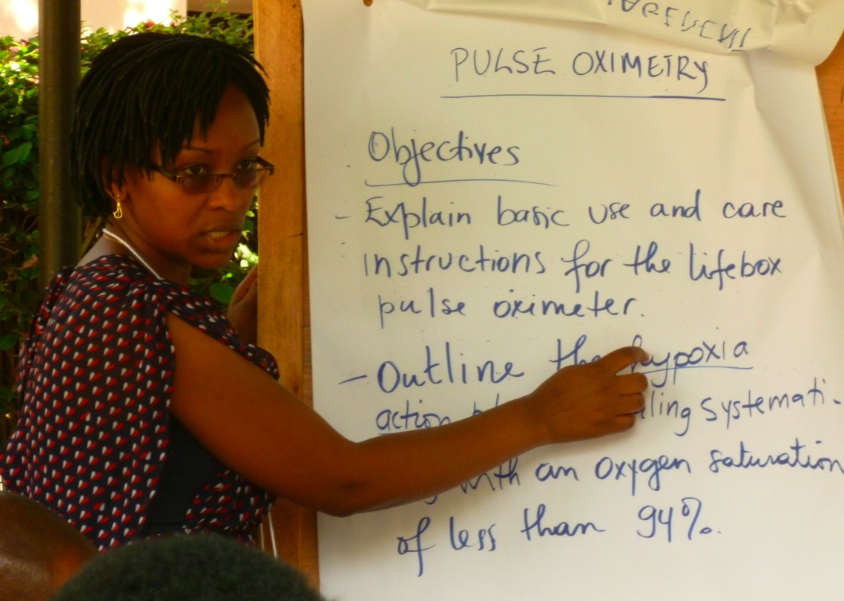 PULSE OXIMETRY
Objectives
- Explain basic use and care
instructions for the lifebox
pulse oximeter.
- Outline the hypoxia
action systemati-
with an oxygen saturation
of less than 94%.